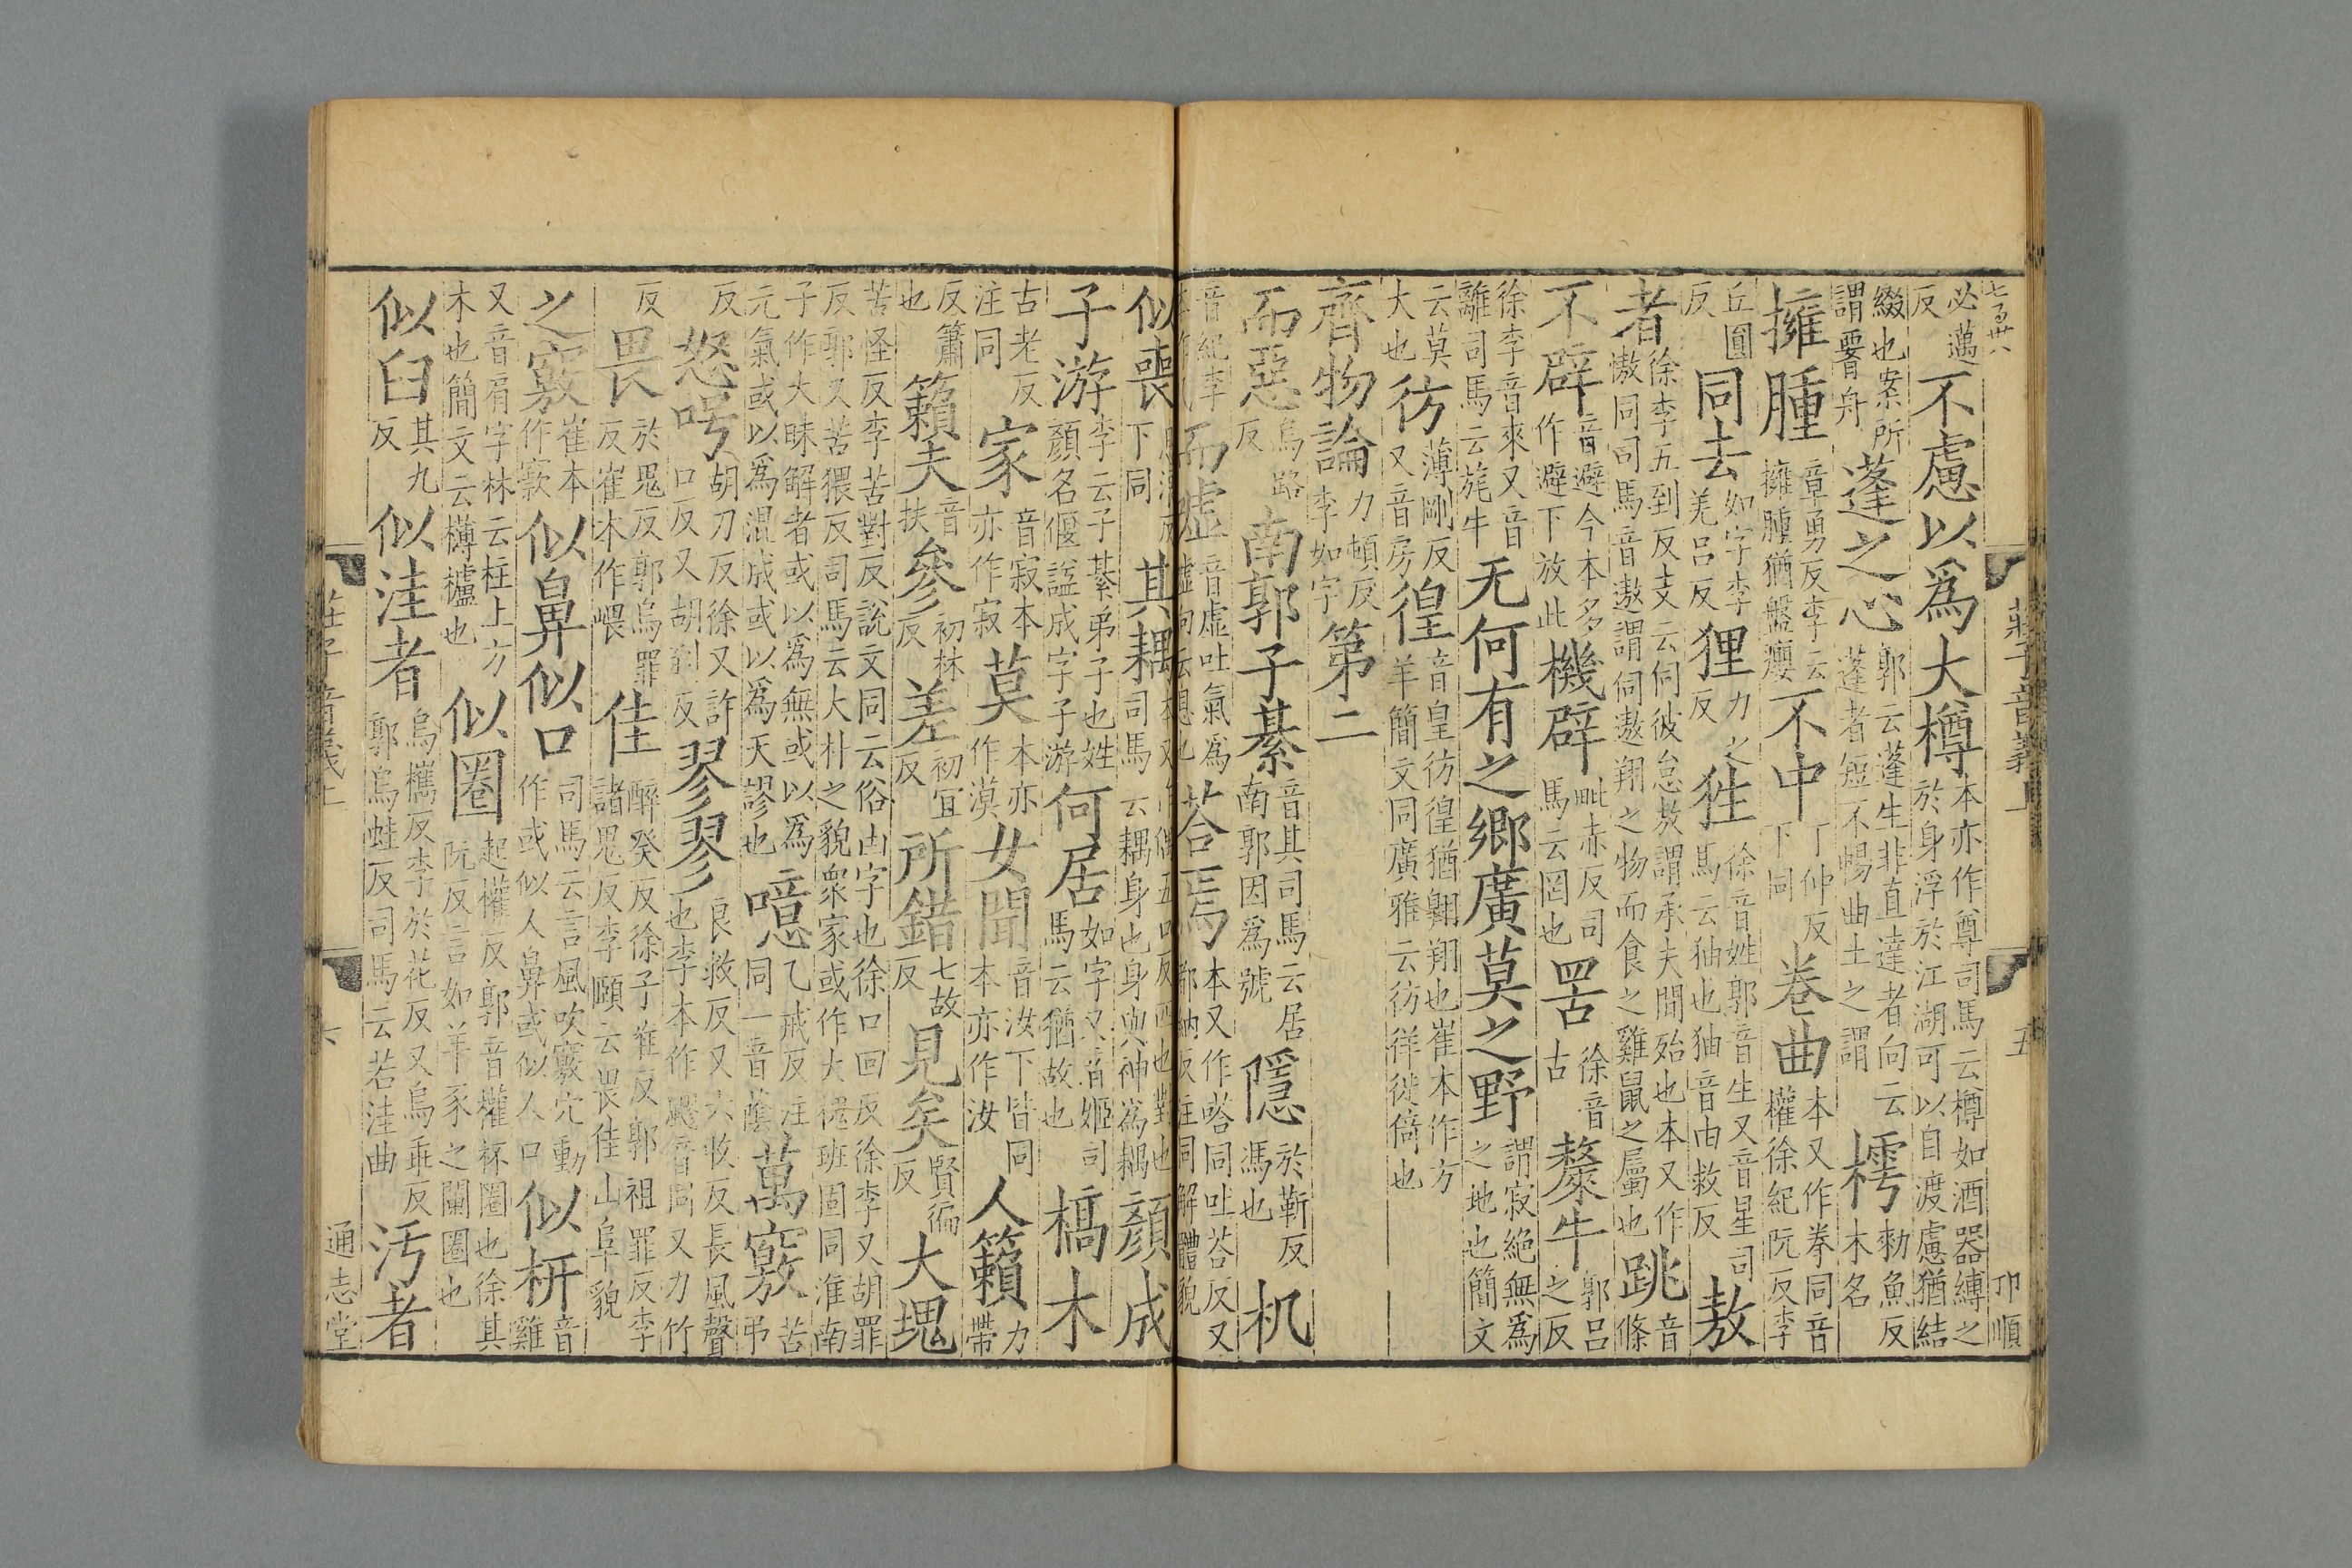 必邁反不慮以爲大樽本亦作尊司馬云樽如酒器縛之於身浮於江湖可以自渡慮猶結
綴也案所謂𦝫舟蓬之心郭云蓬生非直達者向云蓬者短不暢曲士之謂樗勑魚反木名
擁腫章勇反李云擁腫猶盤癭不中丁仲反下同卷曲本又作拳同音權徐紀阮反李
丘圓反同去如字李羌呂反狸力之反狌徐音姓郭音生又音星司馬云狖也狖音由救反敖
者徐李五到反支云伺彼怠敖謂承夫閒殆也本又作遨同司馬音遨謂伺遨翔之物而食之雞鼠之屬也跳音條
不辟音避今本多作避下放此機辟毗赤反司馬云罔也罟徐音古斄牛郭呂之反
徐李音來又音離司馬云旄牛无何有之鄉廣莫之野謂寂絕無爲之地也簡文
云莫大也彷薄剛反又音房徨音皇彷徨猶翱翔也崔本作方羊簡文同廣雅云彷徉徙倚也
齊物論力頓反李如字第二
而惡烏路反南郭子綦音其司馬云居南郭因爲號隱於靳反馮也机
音紀李本作几而噓音虛吐氣爲噓向云息也荅焉本又作嗒同吐荅反又都納反注同解體貌
似喪息浪反下同其耦司馬云耦身也身與神爲耦顏成
子游李云子綦弟子也姓顏名偃諡成字子游何居如字又音姬司馬云猶故也槁木
古老反注同家音寂本亦作寂莫本亦作漠女聞音汝下皆同本亦作汝人籟力帶
反簫也籟夫音扶參初林反差初宜反所錯七故反見矣賢徧反大塊
苦怪反李苦對反說文同云俗凷字也徐口回反徐李又胡罪反郭又苦猥反司馬云大朴之貌衆家或作大槐班固同淮南
子作大昧解者或以爲無或以爲元氣或以爲混成或以爲天謬也噫乙戒反注同一音蔭萬竅苦弔
反怒呺胡刀反徐又許口反又胡到反翏翏良救反又六收反長風聲也李本作飂音同又力竹
反畏於鬼反郭烏罪反崔本作㟪佳醉癸反徐子隹反郭祖罪反李諸鬼反李頤云畏佳山阜貌
之竅崔本作窾似鼻似口司馬云言風吹竅穴動作或似人鼻或似人口似枅音雞
又音肩字林云柱上方木也簡文云欂櫨也似圈起權反郭音權杯圈也徐其阮反言如羊豕之闌圈也
似臼其九反似洼者烏攜反李於花反又烏乖反郭烏蛙反司馬云若洼曲污者
莊子音義上
五
通志堂